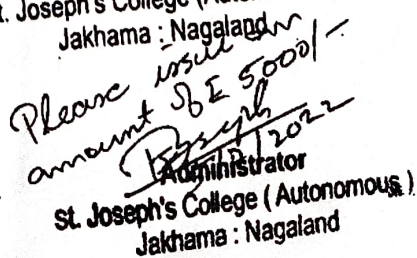 t. Joseph's College (
Jakhama : Nagaland
Please issue an
amount of ₹ 5000/-
/2022
Administrator
St. Joseph's College ( Autonomous )
Jakhama : Nagaland